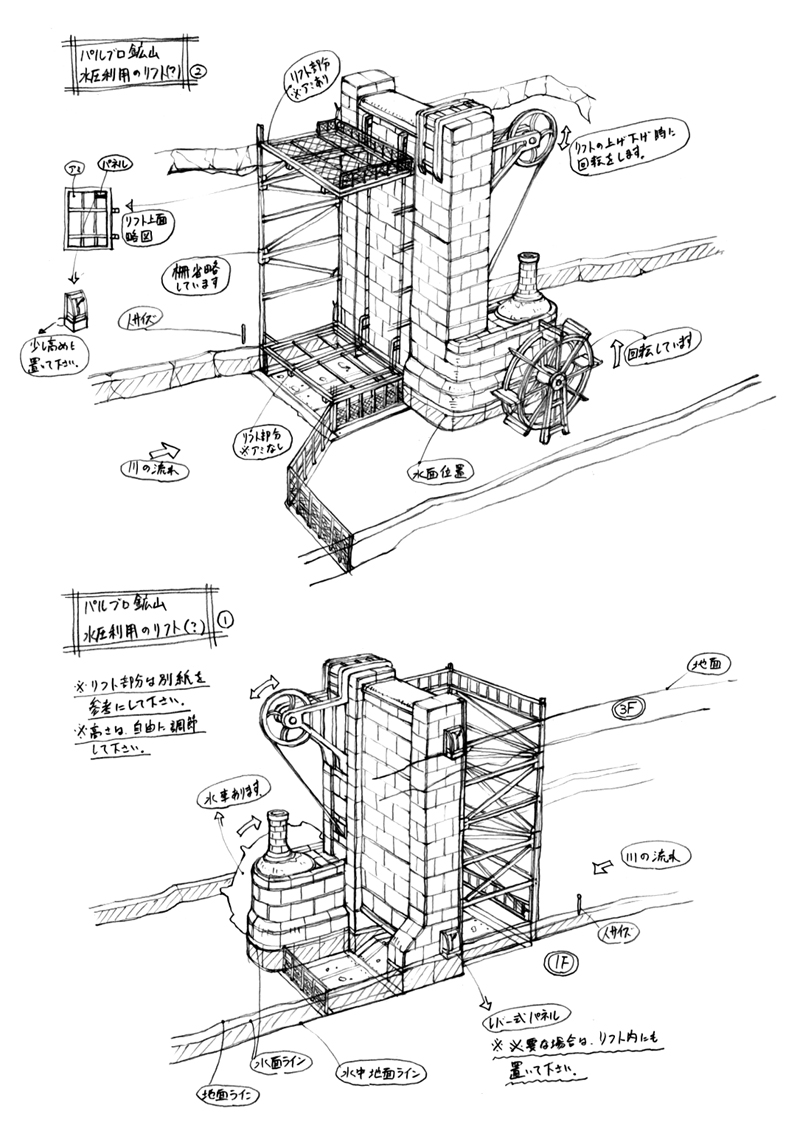 パルブロ鉱山
水圧利用のリフト(?) ②
リフト部分
※アミあり
リフトの上げ下げ時に
回転をします。
アミ
パネル
リフト上面
略図
柵省略
しています
人サイズ
少し高めに
置いて下さい。
回転しています
リフト部分
※アミなし
川の流れ
水面位置
パルブロ鉱山
水圧利用のリフト(?) ①
※リフト部分は別紙を
参考にして下さい。
※高さは、自由に調節
して下さい。
地面
3F
水車あります。
川の流れ
人サイズ
1F
レバー式パネル
※必要な場合は、リフト内にも
置いて下さい。
水面ライン
水中地面ライン
地面ライン